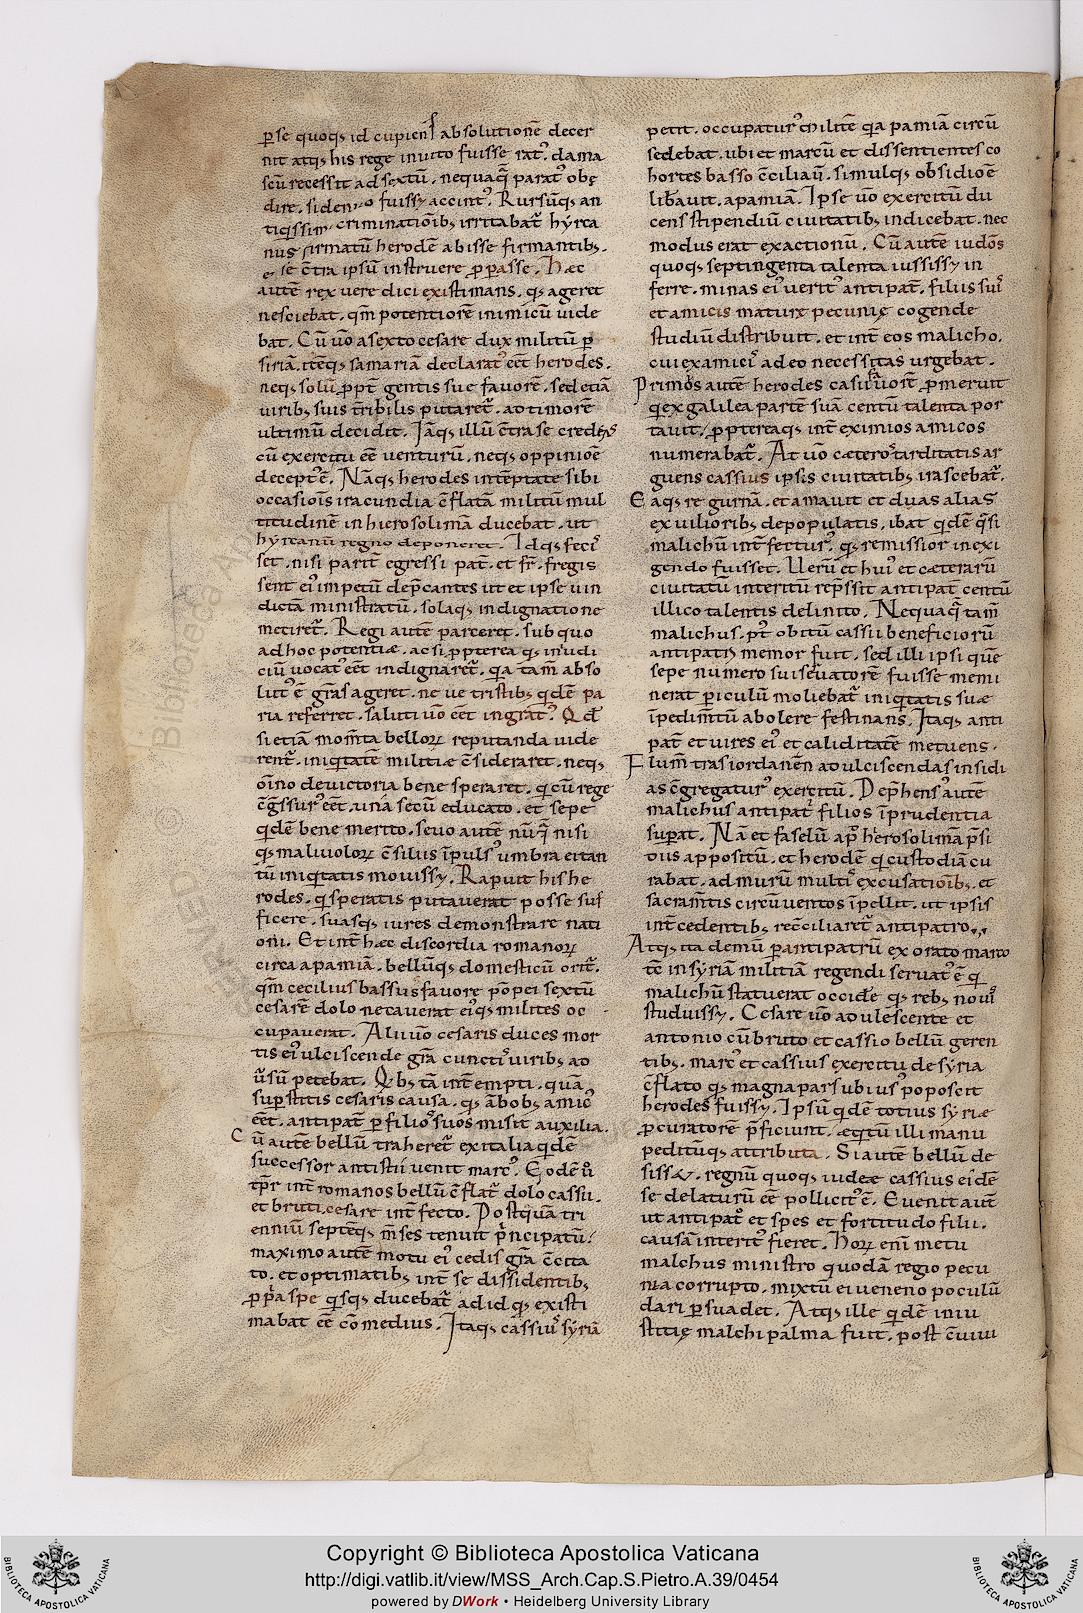 p̄se quoq; id cupienſ absolutionē decer
nit atq; his rege inuito fuisse rat᾽. dama
scū recessit ad sextū. nequaq̄ parat᾽ obę
dire. si denuo fuiss& accint᾽. Rursūq; an
tiqissim criminatiōib; irritabat᷑ hyrca
nus irmatū herodē abisse firmantib;.
se c̄tra ipsū instruere p̄passe. Hæc
autē rex uere dici existimans. qd ageret
nesciebat. qm̄ potentiorē inimicū uide
bat. Cū u̅o a sexto cesare dux militū p̄
siriā. itēq; samariā declarat᾽ eēt herodes.
neq; solū p̄pt̄ gentis sue fauorē. sed etiā
uirib; suis t̄ribilis putaret᷑. ad timorē
ultimū decidit. Iāq; illū c̄tra se credens
cū exercitu eē uenturū. neq; oppinione
decept᾽ ē. Nāq; herodes intēptate sibi
occasiōis iracundia c̄flatā militū mul
titudinē in hierosolimā ducebat. ut
hyrcanū regno deponeret. Idq; feci᾽
set. nisi parit̄ egressi pat̄. et fr̄. fregis
sent ei᾽ impetū dep̄cantes ut et ipse uin
dictā ministratū. solaq; indignatione
metiret᷑. Regi autē parceret. sub quo
ad hoc potentiæ. ac si p̄pterea qd in iudi
ciū uocat᾽ eēt indignaret᷑. qa tam̄ abso
lut᾽ ē grās ageret. ne ue tristib; qdē pa
ria referret. saluti u̅o eēt ingrat᾽. Qd̄
si etiā mom̄ta belloꝝ reputanda uide
rent᷑. iniqtatē militiæ c̄sideraret. neq;
oīno de uictoria bene speraret. q cū rege
c̄gssur᾽ eēt. una secū educato. et sepe
qdē bene merito. seuo autē nūq̄ nisi
qd maliuoloꝝ c̄siliis īpuls᾽ umbra ei tan
tū iniqtatis mouiss&. Rapuit his he
rodes. q speratis putauerat posse suf
ficere. suasq; uires demonstrare nati
oni. Et int̄ hæc discordia romanoꝝ
circa apamiā. bellūq; domesticū orit᷑.
qm̄ cecilius bassus fauore pōpei sextū
cesarē dolo necauerat ei᾽q; milites oc
cupauerat. Alii u̅o cesaris duces mor
tis ei᾽ ulciscende grā cuncti᾽ uirib; ad
u᷑sū petebat. Qb; tā int̄empti. quā
sup̄stitis cesaris causa. qd ābob; amic᾽
eēt. antipat̄ p̄ filio᾽ suos misit auxilia.
Cū autē bellū traheret᷑ ex italia qdē
successor antistii uenit marc᾽. Eodē u̅o
tp̄r int̄ romanos bellū c̄flat᷑ dolo cassii.
et bruti. cesare int̄fecto. Postquā tri
enniū septēq; m̄ses tenuit p̄ncipatū.
maximo autē motu ei᾽ cedis grā c̄cita
to. et optimatib; int̄ se dissidentib;
p̄pria spe qsq; ducebat᷑ ad id qd existi
mabat eē cōmedius. Itaq; cassiu᾽ syriā
petit. occupatur᾽ militē qa pamiā circū
sedebat. ubi et marcū et dissentientes co
hortes basso c̄ciliau̅. simulq; obsidioē
lib̄auit. apamiā. Ipse u̅o exercitū du
cens stipendiū ciuitatib; indicebat. nec
modus erat exactionū. Cū autē iudōs
quoq; septingenta talenta iussiss& in
ferre. minas ei᾽ uerit᾽ antipat̄. filiis sui᾽
et amicis mature pecunię cogende
studiū distribuit. et int̄ eos malicho.
cui examici᾽ adeo necessitas urgebat.
Primo᾽s autē herodes casii fauorē p̄meruit
q ex galilea partē suā centū talenta por
tauit. p̄ptereaq; int̄ eximios amicos
numerabat᷑. At u̅o cætero᾽ tarditatis ar
guens cassius ipsis ciuitatib; irascebat᷑.
Eaq; re gurnā. et amauit et duas alias
ex uiliorib; depopulatis. ibat qdē q̄si
malichū int̄fectur᾽. qd remissior in exi
gendo fuisset. Uerū et hui᾽ et cæterarū
ciuitatū interitū rep̄ssit antipat̄ centū
illico talentis delinito. Nequaq̄ tam̄
malichus. p᾽t obitū cassii beneficiorū
antipatri memor fuit. sed illi ipsi quē
sepe numero sui seruatorē fuisse memi
nerat p̄iculū moliebat᷑ iniqtatis suæ
īpedim̄tū abolere festinans. Itaq; anti
pat̄ et uires ei᾽ et caliditatē metuens.
Flum̄ tras iordanēn ad ulciscendas insidi
as c̄gregatur᾽ exercitū. Dep̄hens᾽ autē
malichus antipat᷑ filios īprudentia
sup̄at. Nā et faselū ap᾽ hierosolimā p̄si
diis appositū. et herodē q custodiā cu
rabat. ad murū multi᾽ excusatiōib;. et
sacram̄tis circūuentos īpellit. ut ipsis
int̄cedentib; rec̄ciliaret᷑ antipatro.,.
Atq; ita demū p̄ antipatrū exorato marco
tē in syriā militiā regendi seruat᾽ ē q
malichū statuerat occidere qd reb; noui᾽
studuiss&. Cesare u̅o adulescente et
antonio cū bruto et cassio bellū geren
tib;. marc᾽ et cassius exercitu de syria
c̄flato qd magna pars ubi us᾽ poposcit
herodes fuiss&. Ipsū qdē totius syriæ
p̄curatorē p̄ficiunt. æqtū illi manu
peditūq; attributa. Si autē bellū de
siss&. regnū quoq; iudeæ cassius eidē
se delaturū eē pollicit᾽ ē. Euenit autē
ut antipat᷑ et spes et fortitudo filii.
causā interit᾽ fieret. Hoꝝ enī metu
malchus ministro quodā regio pecu
nia corrupto. mixtū ei ueneno poculū
dari p̄suadet. Atq; ille qdē iniu
stitię malchi palma fuit. post c̄uiui
Copyright © Biblioteca Apostolica Vaticana
http://digi.vatlib.it/view/MSS_Arch.Cap.S.Pietro.A.39/0454
powered by DWork • Heidelberg University Library
BIBLIOTECA APOSTOLICA VATICANA
BIBLIOTECA APOSTOLICA VATICANA